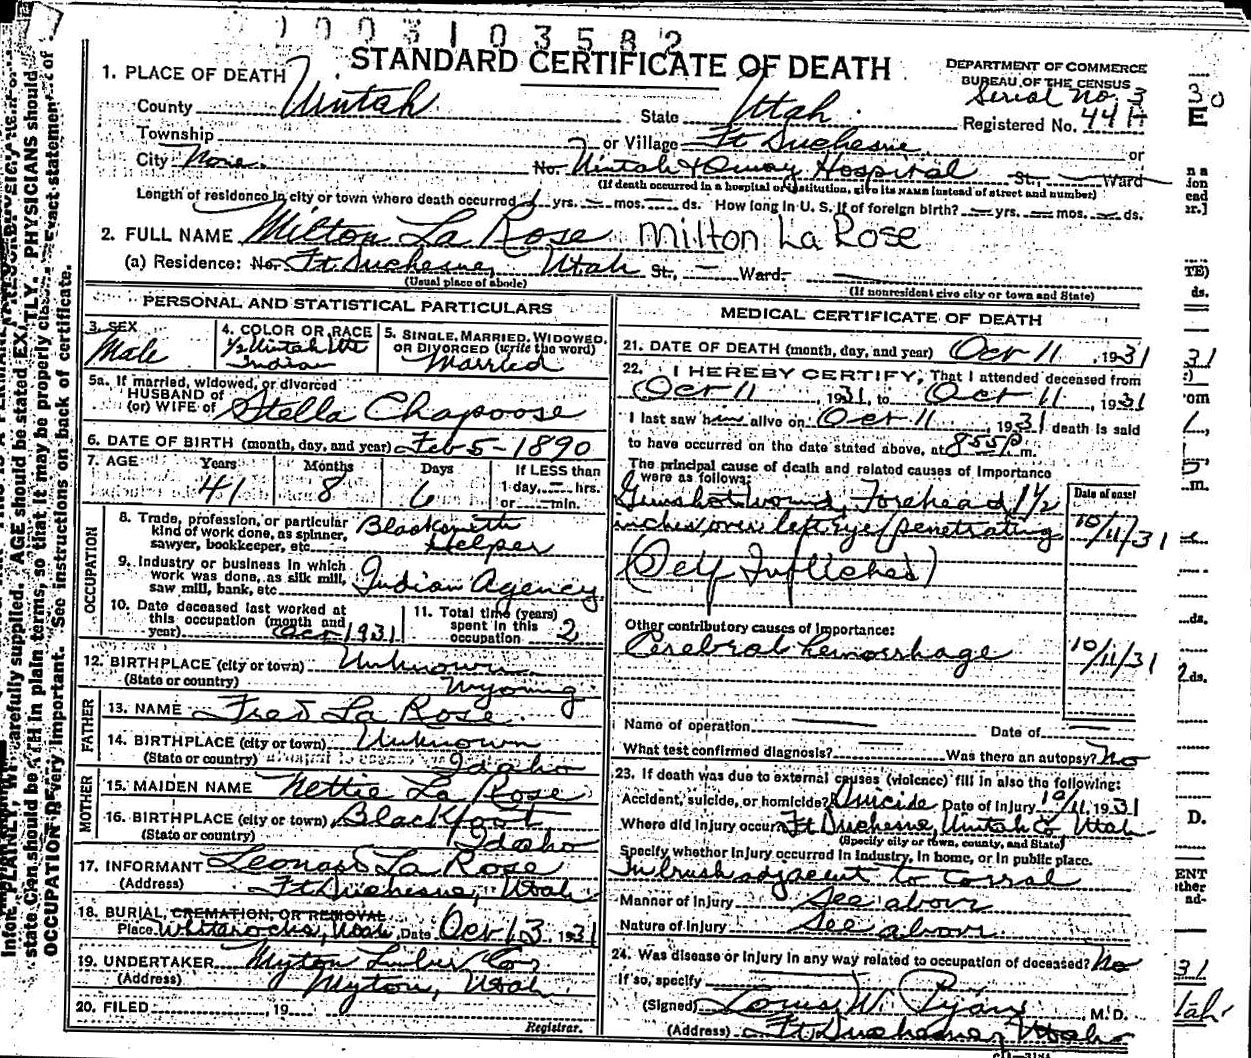 1003103582
STANDARD CERTIFICATE OF DEATH
DEPARTMENT OF COMMERCE
BUREAU OF THE CENSUS
1. PLACE OF DEATH
Serial No. 3
County Uintah State Utah Registered No. 44
Township or Village Ft Duchesne or
City None. No. Uintah & Ouray Hospital St., Ward
(If death occurred in a hospital or institution, give its NAME instead of street and number)
Length of residence in city or town where death occurred yrs. mos. ds. How long in U. S. if of foreign birth? yrs. mos. ds.
2. FULL NAME Milton La Rose Milton La Rose
(a) Residence: No. Ft. Duchesne, Utah St., Ward.
(Usual place of abode) (If nonresident give city or town and State)
PERSONAL AND STATISTICAL PARTICULARS
3. SEX Male
4. COLOR OR RACE 1/2 Uintah Ute Indian
5. SINGLE, MARRIED, WIDOWED, OR DIVORCED (write the word) Married
5a. If married, widowed, or divorced
HUSBAND of
(or) WIFE of Stella Chapoose
6. DATE OF BIRTH (month, day, and year) Feb 5 - 1890
7. AGE Years Months Days If LESS than
41 8 6 1 day, hrs.
or min.
OCCUPATION
8. Trade, profession, or particular kind of work done, as spinner, sawyer, bookkeeper, etc Blacksmith Helper
9. Industry or business in which work was done, as silk mill, saw mill, bank, etc Indian Agency
10. Date deceased last worked at this occupation (month and year) Oct 1931
11. Total time (years) spent in this occupation 2
12. BIRTHPLACE (city or town) Unknown
(State or country) Wyoming
FATHER
13. NAME Fred La Rose
14. BIRTHPLACE (city or town) Unknown
(State or country) Idaho
MOTHER
15. MAIDEN NAME Nettie La Rose
16. BIRTHPLACE (city or town) Blackfoot
(State or country) Idaho
17. INFORMANT Leonard La Rose
(Address) Ft. Duchesne, Utah
18. BURIAL, CREMATION, OR REMOVAL
Place Whiterocks, Utah Date Oct 13 1931
19. UNDERTAKER Myton Lumber Co,
(Address) Myton, Utah
20. FILED , 19
Registrar.
MEDICAL CERTIFICATE OF DEATH
21. DATE OF DEATH (month, day, and year) Oct 11, 1931
22. I HEREBY CERTIFY, That I attended deceased from
Oct 11, 1931, to Oct 11, 1931
I last saw him alive on Oct 11, 1931 death is said
to have occurred on the date stated above, at 855P m.
The principal cause of death and related causes of importance
were as follows: Date of onset
Gunshot wound, Forehead 1½
inches over left Eye/penetrating 10/11/31
(Self Inflicted)
Other contributory causes of importance:
Cerebral hemorrhage 10/11/31
Name of operation Date of
What test confirmed diagnosis? Was there an autopsy? No
23. If death was due to external causes (violence) fill in also the following:
Accident, suicide, or homicide? Suicide Date of injury 10/11 1931
Where did injury occur? Ft Duchesne, Uintah Co, Utah
(Specify city or town, county, and State)
Specify whether injury occurred in industry, in home, or in public place.
In brush adjacent to Corral
Manner of injury See above
Nature of injury See above
24. Was disease or injury in any way related to occupation of deceased? No
If so, specify
(Signed) Louis W. , M. D.
(Address) Ft Duchesne, Utah